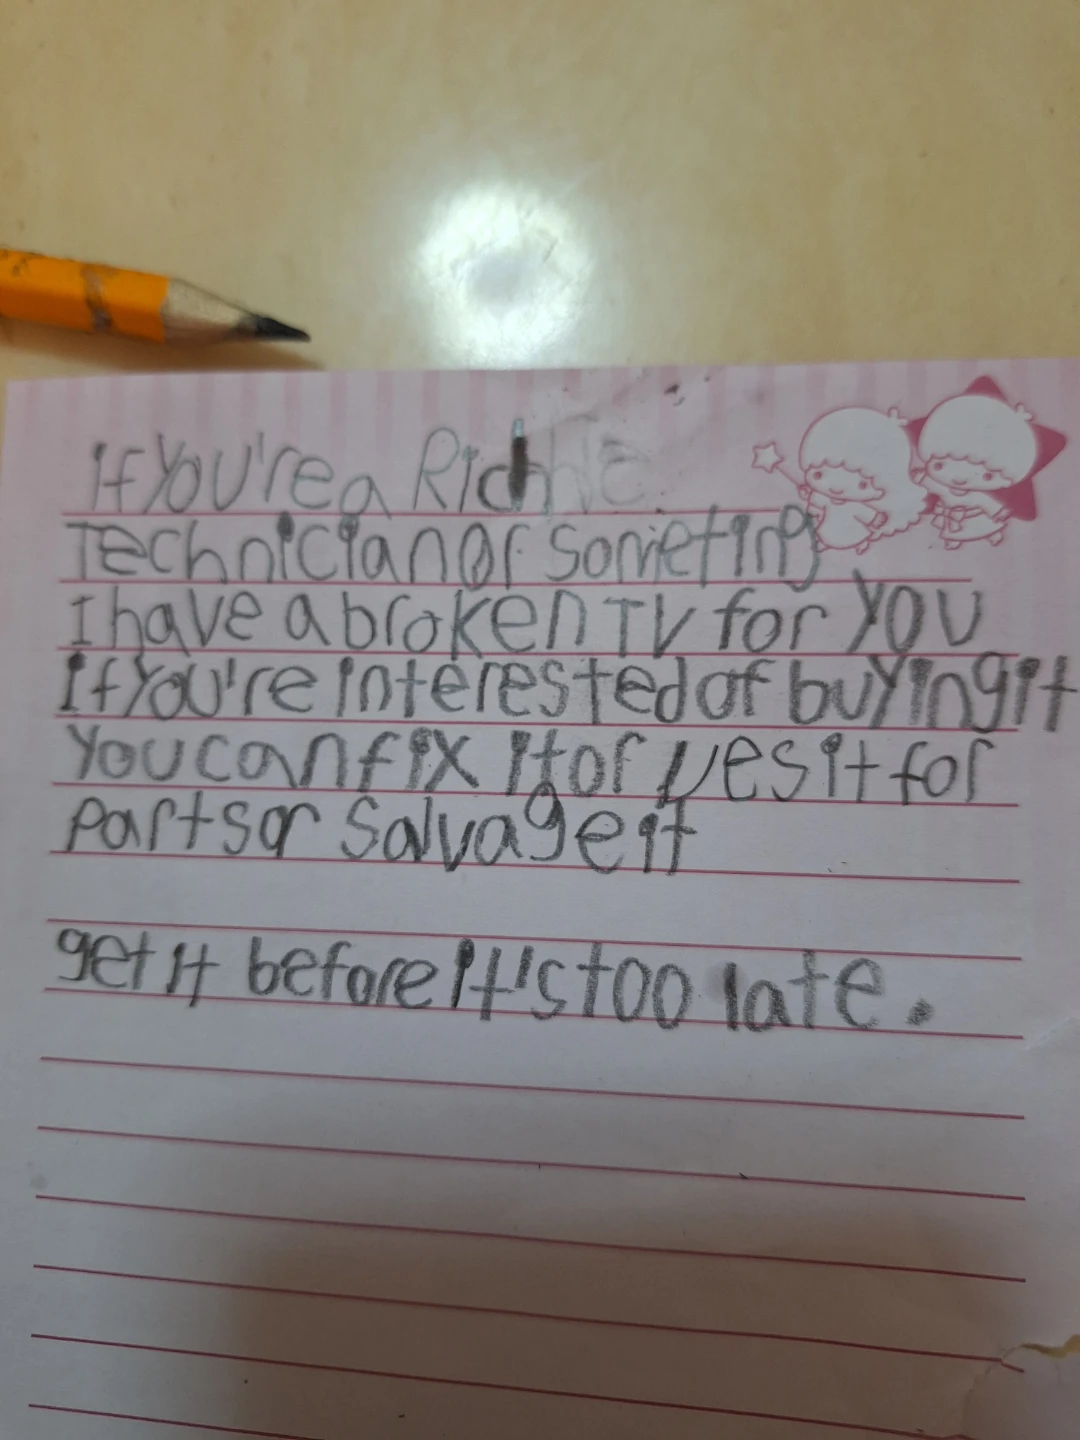 If You're a Rich
Technician or someting
I have a broken TV for you
If You're interested of buying it
You can fix it or ues it for
parts or Salvage it
get it before it's too late.